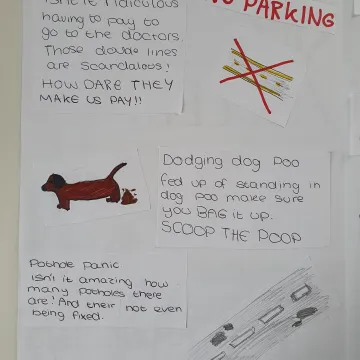 Isn't it ridiculous
having to pay to
go to the doctors
Those double lines
are scandalous!
HOW DARE THEY
MAKE US PAY!!
NO PARKING
Dodging dog poo
fed up of standing in
dog poo make sure
you BAG it up.
SCOOP THE POOP
Pothole Panic
isn't it amazing how
many potholes there
are! And their not even
being fixed.